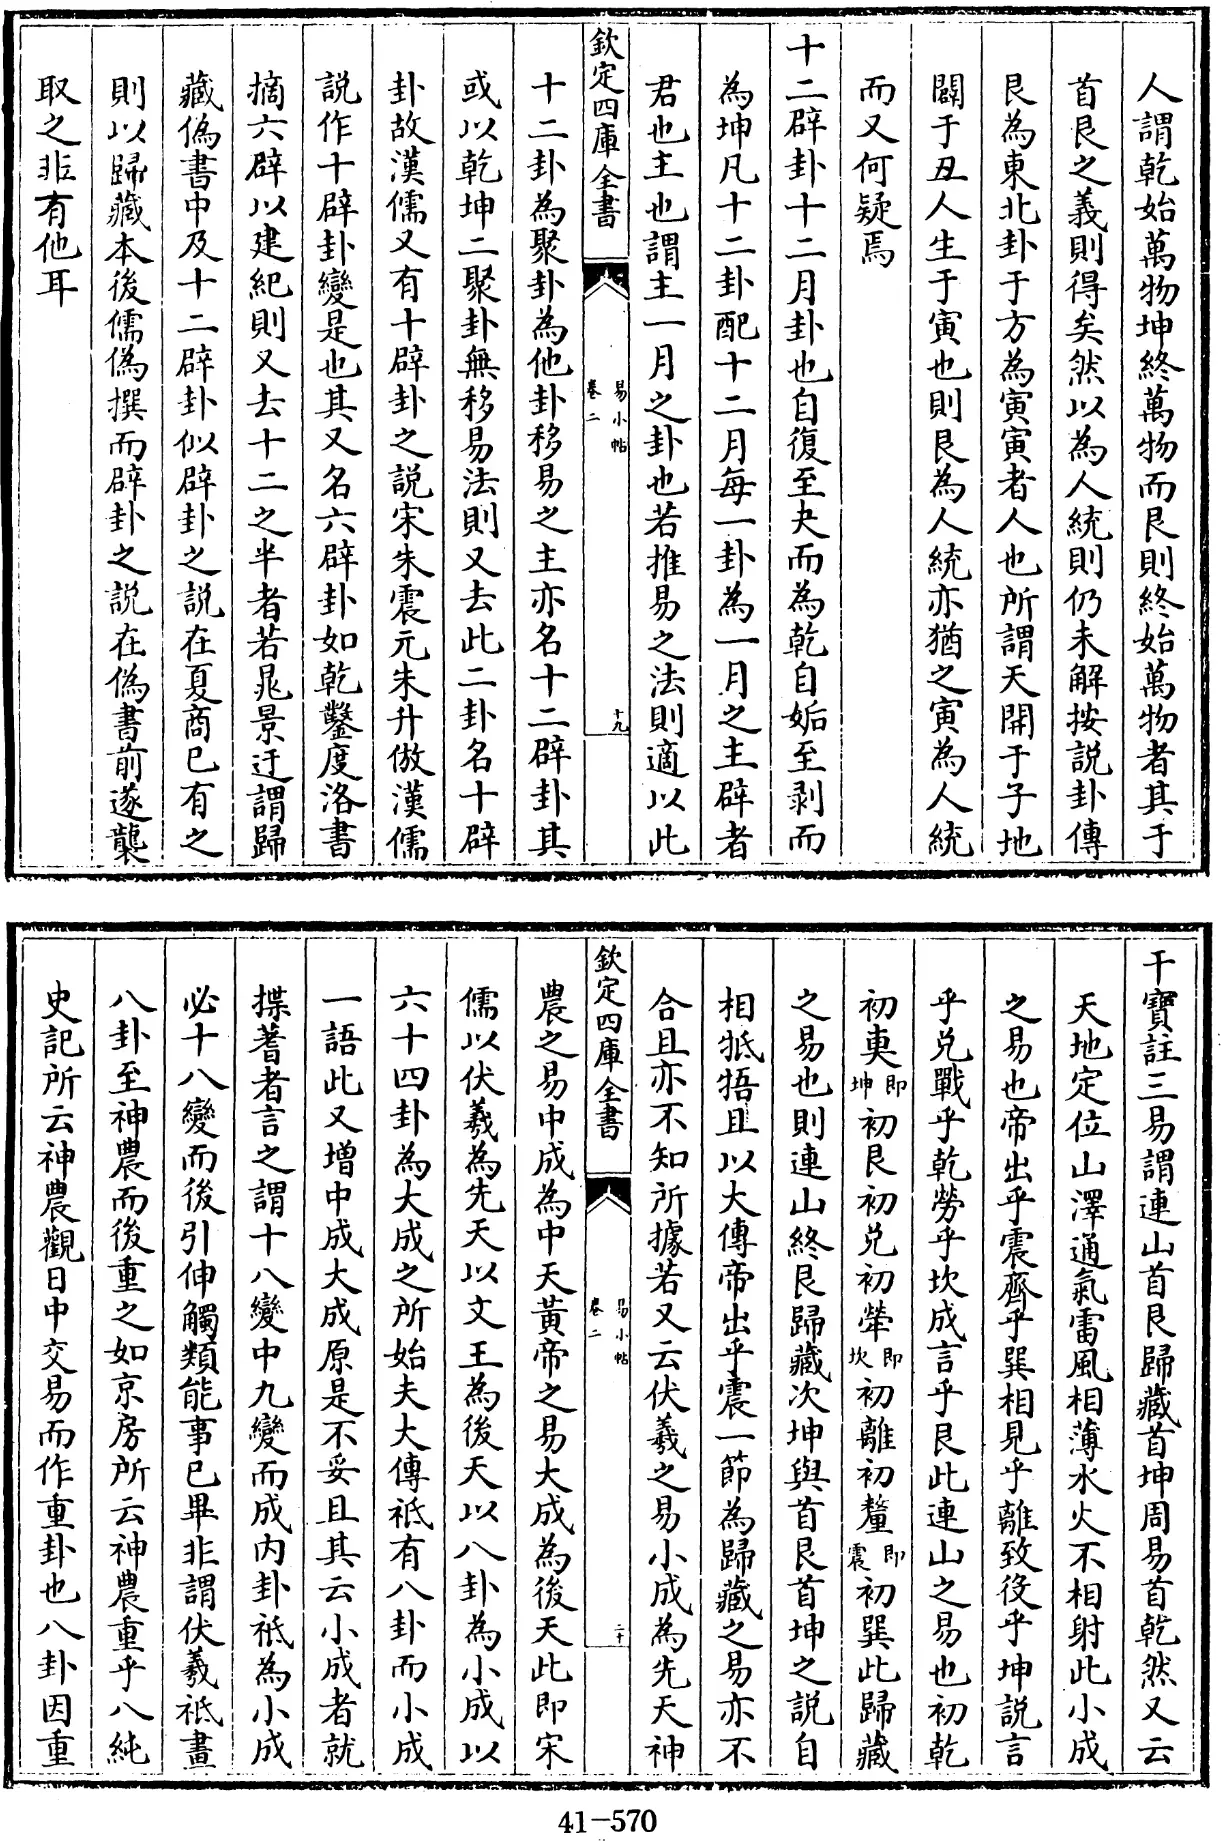 人謂乾始萬物坤終萬物而艮則終始萬物者其于
首艮之義則得矣然以為人統則仍未解按説卦傳
艮為東北卦于方為寅寅者人也所謂天開于子地
闢于丑人生于寅也則艮為人統亦猶之寅為人統
而又何疑焉
十二辟卦十二月卦也自復至夬而為乾自姤至剥而
為坤凡十二卦配十二月每一卦為一月之主辟者
君也主也謂主一月之卦也若推易之法則適以此
欽定四庫全書
易小帖
卷二
十九
十二卦為聚卦為他卦移易之主亦名十二辟卦其
或以乾坤二聚卦無移易法則又去此二卦名十辟
卦故漢儒又有十辟卦之説宋朱震元朱升倣漢儒
説作十辟卦變是也其又名六辟卦如乾鑿度洛書
摘六辟以建紀則又去十二之半者若晁景迂謂歸
藏偽書中及十二辟卦似辟卦之説在夏商已有之
則以歸藏本後儒偽撰而辟卦之説在偽書前遂襲
取之非有他耳
干寶註三易謂連山首艮歸藏首坤周易首乾然又云
天地定位山澤通氣雷風相薄水火不相射此小成
之易也帝出乎震齊乎巽相見乎離致役乎坤説言
乎兑戰乎乾勞乎坎成言乎艮此連山之易也初乾
初奭即坤初艮初兑初犖即坎初離初釐即震初巽此歸藏
之易也則連山終艮歸藏次坤與首艮首坤之説自
相牴牾且以大傳帝出乎震一節為歸藏之易亦不
合且亦不知所據若又云伏羲之易小成為先天神
欽定四庫全書
易小帖
卷二
二十
農之易中成為中天黃帝之易大成為後天此即宋
儒以伏羲為先天以文王為後天以八卦為小成以
六十四卦為大成之所始夫大傳祇有八卦而小成
一語此又增中成大成原是不妥且其云小成者就
揲蓍者言之謂十八變中九變而成内卦祇為小成
必十八變而後引伸觸類能事已畢非謂伏羲祇畫
八卦至神農而後重之如京房所云神農重乎八純
史記所云神農觀日中交易而作重卦也八卦因重
41-570